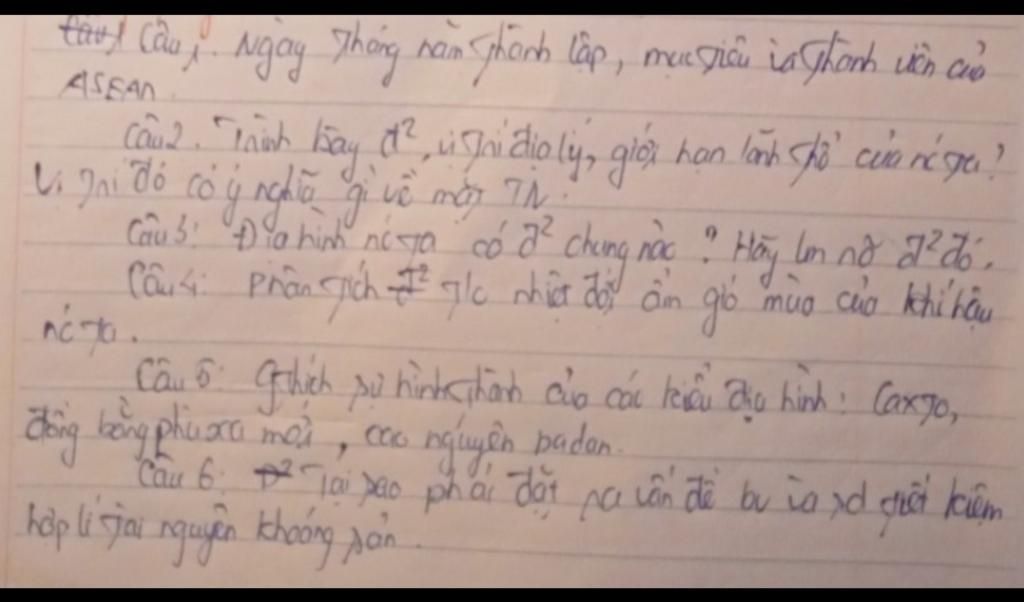 Câu 1. Ngày tháng năm thành lập, mục tiêu và thành viên của
ASEAN.
Câu 2. Trình bày đ², vị trí địa lý, giới hạn lãnh thổ của nc ta?
Vị trí đó có ý nghĩa gì về mặt TN.
Câu 3: Địa hình nc ta có đ² chung nào? Hãy đ² đó.
Câu 4: Phân tích t/c nhiệt đới ẩm gió mùa của khí hậu
nc ta.
Câu 5: Gthích sự hình thành của các kiểu địa hình: Caxtơ,
đồng bằng phù sa mới, cao nguyên badan.
Câu 6: Tại sao phải đặt ra vấn đề bv và sd tiết kiệm
hợp lí tài nguyên khoáng sản.